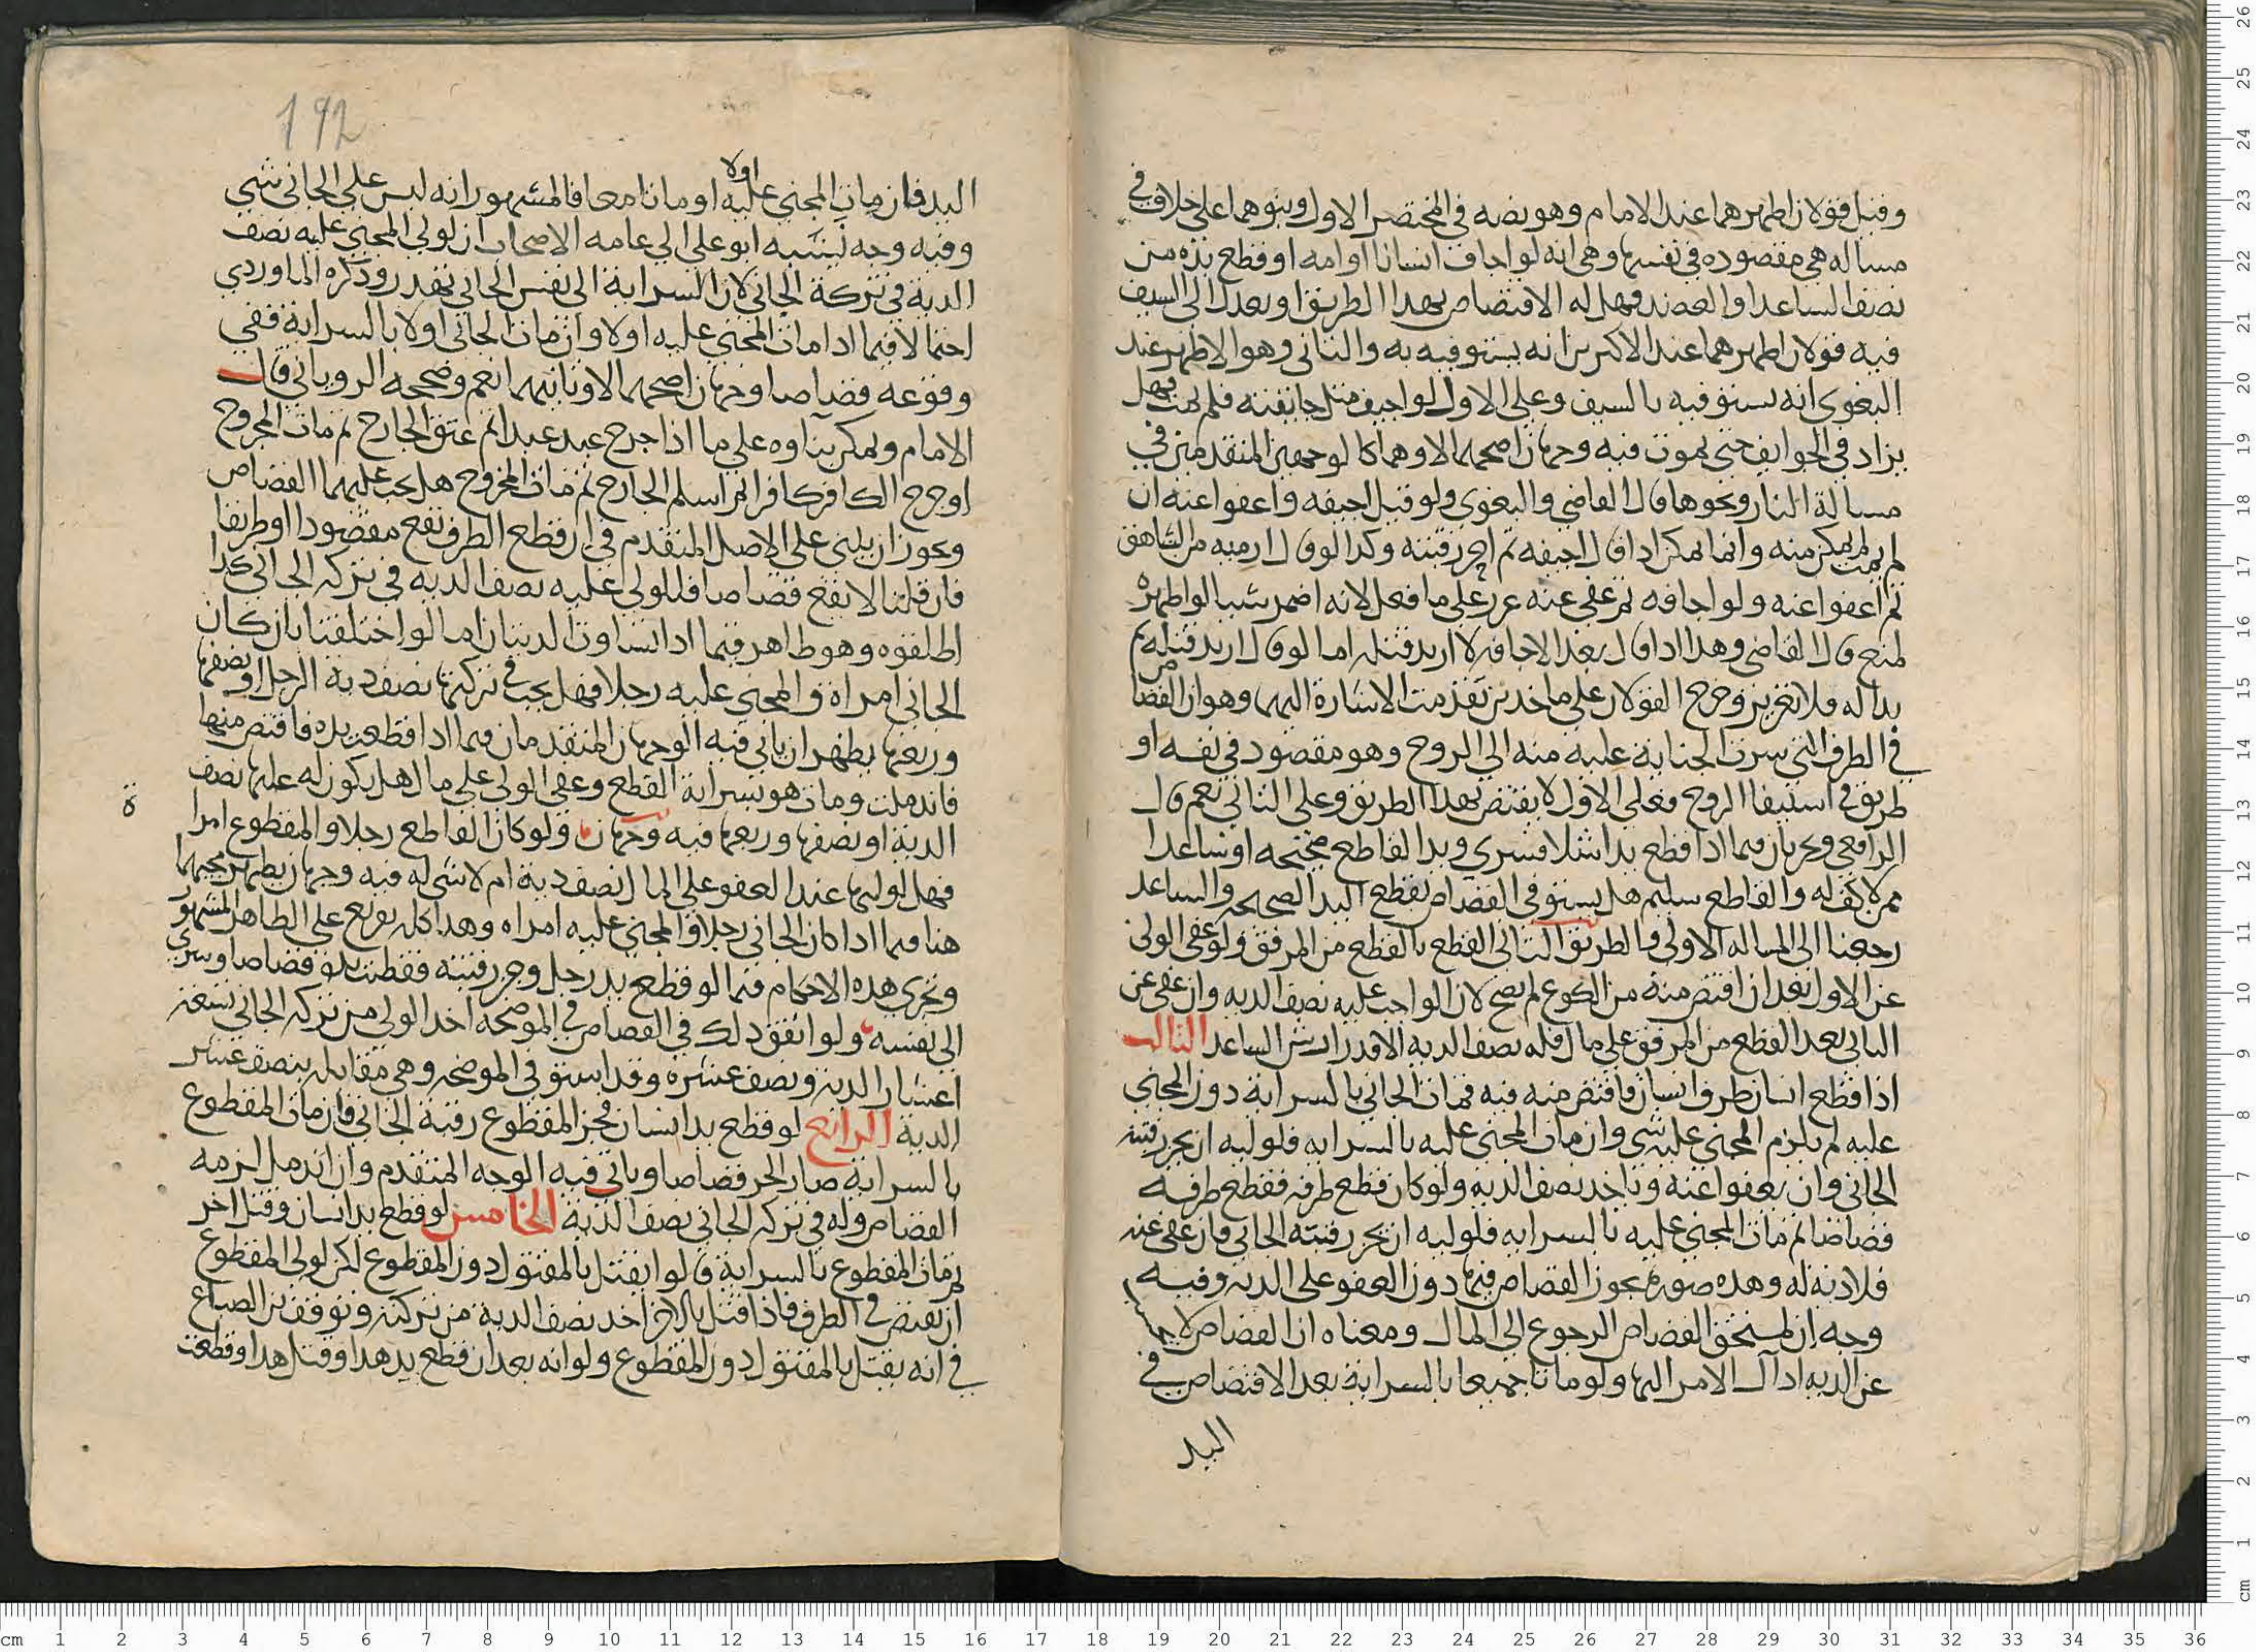 وقيل قولان اظهرهما عند الامام وهو نصه في المختصر الاول وبنوهما على خلاف في
مساله هي مقصوده في نفسها وهي انه لو اجاف انسانا او امه او قطع يده من
نصف الساعد او العضد فهل له الاقتصاص بهذا الطريق او يعدل الى السيف
فيه قولان اظهرهما عند الاكثرين انه يستوفيه به والثاني وهو الاظهر عند
البغوي انه يستوفيه بالسيف وعلى الاول لو اجيف مثل جايفته فلم يمت فهل
يزاد في الجوايف حتى يموت فيه وجهان اصحهما لا وهما كالوجهين المتقدمين في
مسالة النار ونحوها قال القاضي والبغوي ولو قيل اجيفه واعفوا عنه ان
لم يمت لم يمكن منه وانما يمكن اذا قال اجيفه ثم احز رقبته وكذا لو قال ارميه من الشاهق
ثم اعفوا عنه ولو اجافه ثم عفى عنه عزر على ما فعل لانه اضمر شيا لو اظهره
لمنع قال القاضي وهذا اذا قال بعد الاجافه لا اريد قتله اما لو قال اريد قتله ثم
بدا له فلا تعزير وخرج القولان على ماخذين تقدمت الاشارة اليهما وهو ان القصاص
في الطرف التي سرت الجناية عليه منه الى الروح وهو مقصود في نفسه او
طريق في استيفا الروح فعلى الاول لا يقتص بهذا الطريق وعلى الثاني نعم قال
الرافعي ويجريان فيما اذا قطع يدا شلا فسري ويد القاطع صحيحه او ساعدا
ممن لا كف له والقاطع سليم هل يستوفي القصاص بقطع اليد الصحيحه والساعد
رجعنا الى المساله الاولى والطريق الثاني القطع بالقطع من المرفق ولو عفى الولي
عن الاول بعد ان اقتص منه من الكوع لم يصح لان الواجب عليه نصف الديه وان عفى عن
الثاني بعد القطع من المرفق على مال فله نصف الديه الا قدر ارش الساعد الثالث
اذا قطع انسان طرف انسان فاقتص منه فيه فمات الجاني بالسراية دون المجني
عليه لم يلزم المجني عليه شي وان مات المجني عليه بالسرايه فلوليه ان يحز رقبة
الجاني وان يعفوا عنه وياخذ نصف الديه ولو كان قطع طرفه فقطع طرفيه
قصاصا ثم مات المجني عليه بالسرايه فلوليه ان يحز رقبته الجاني فان عفى عنه
فلا دية له وهذه صورة يجوز القصاص فيها دون العفو على الديه وفيه
وجه ان لمستحق القصاص الرجوع الى المال ومعناه ان القصاص لا
عن الديه اذا آل الامر اليها ولو ماتا جميعا بالسراية بعد الاقتصاص في
اليد
192
اولا
اليد فان مات المجني عليه او ماتا معا فالمشهور انه ليس على الجاني شي
وفيه وجه ينسبه ابو علي الى عامه الاصحاب ان لولي المجني عليه نصف
الدية في تركة الجاني لان السراية الى نفس الجاني تهدر وذكره الماوردي
احتمالا فيما اذا مات المجني عليه اولا وان مات الجاني اولا بالسراية ففي
وقوعه قصاصا وجهان اصحهما لا وثانيهما نعم وصححه الروياني قال
الامام ويمكن بناوه على ما اذا جرح عبد عبدا ثم عتق الجارح ثم مات المجروح
او جرح الكافر كافرا ثم اسلم الجارح ثم مات المجروح هل يجب عليهما القصاص
ويجوز ان يبنى على الاصل المتقدم في ان قطع الطرف يقع مقصودا او طريقا
فان قلنا لا يقع قصاصا فللولي عليه نصف الديه في تركه الجاني كذا
اطلقوه وهو ظاهر فيما اذا تساوت الديتان اما لو اختلفتا بان كان
الجاني امراة والمجني عليه رجلا فهل يجب في تركتها نصف دية الرجل او نصفها
وربعها يظهر ان ياتي فيه الوجهان المتقدمان فيما اذا قطعت يده فاقتص منها
فاندملت ومات هو بسراية القطع وعفى الولي على مال هل يكون له عليها نصف
الدية او نصفها وربعها فيه وجهان ولو كان القاطع رجلا والمقطوع امراة
فهل لوليها عند العفو على المال نصف دية ام لا شي له فيه وجهان يظهر مجيهما
هنا فيما اذا كان الجاني رجلا والمجني عليه امراه وهذا كله تفريع على الظاهر المشهور
وتجري هذه الاحكام فيما لو قطع يد رجل وحز رقبته فقطعت يده قصاصا وسري
الى نفسه ولو اتفق ذلك في القصاص في الموضحه اخذ الولي من تركه الجاني تسعة
اعشار الدية ونصف عشره وقد استوفي الموضحه وهي مقابله بنصف عشر
الدية الرابع لو قطع يد انسان فحز المقطوع رقبة الجاني فان مات المقطوع
بالسراية صار الحز قصاصا وياتي فيه الوجه المتقدم وان اندمل لزمه
القصاص وله في تركه الجاني نصف الدية الخامس لو قطع يد انسان وقتل اخر
ثم مات المقطوع بالسراية قالوا يقتل بالمقتول دون المقطوع لكن لولي المقطوع
ان يقتص في الطرف فاذا قتل بالاخر اخذ نصف الدية من تركته وتوقف بن الصباغ
في انه يقتل بالمقتول دون المقطوع ولو انه بعد ان قطع يد هذا وقتل هذا وقطعت